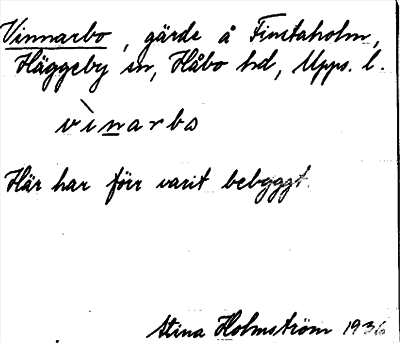 Vinnarbo, gärde å Finstaholm,
Häggeby sn, Håbo hd, Upps. l.
vìnarbo
Här har förr varit bebyggt.
Stina Holmström 1936